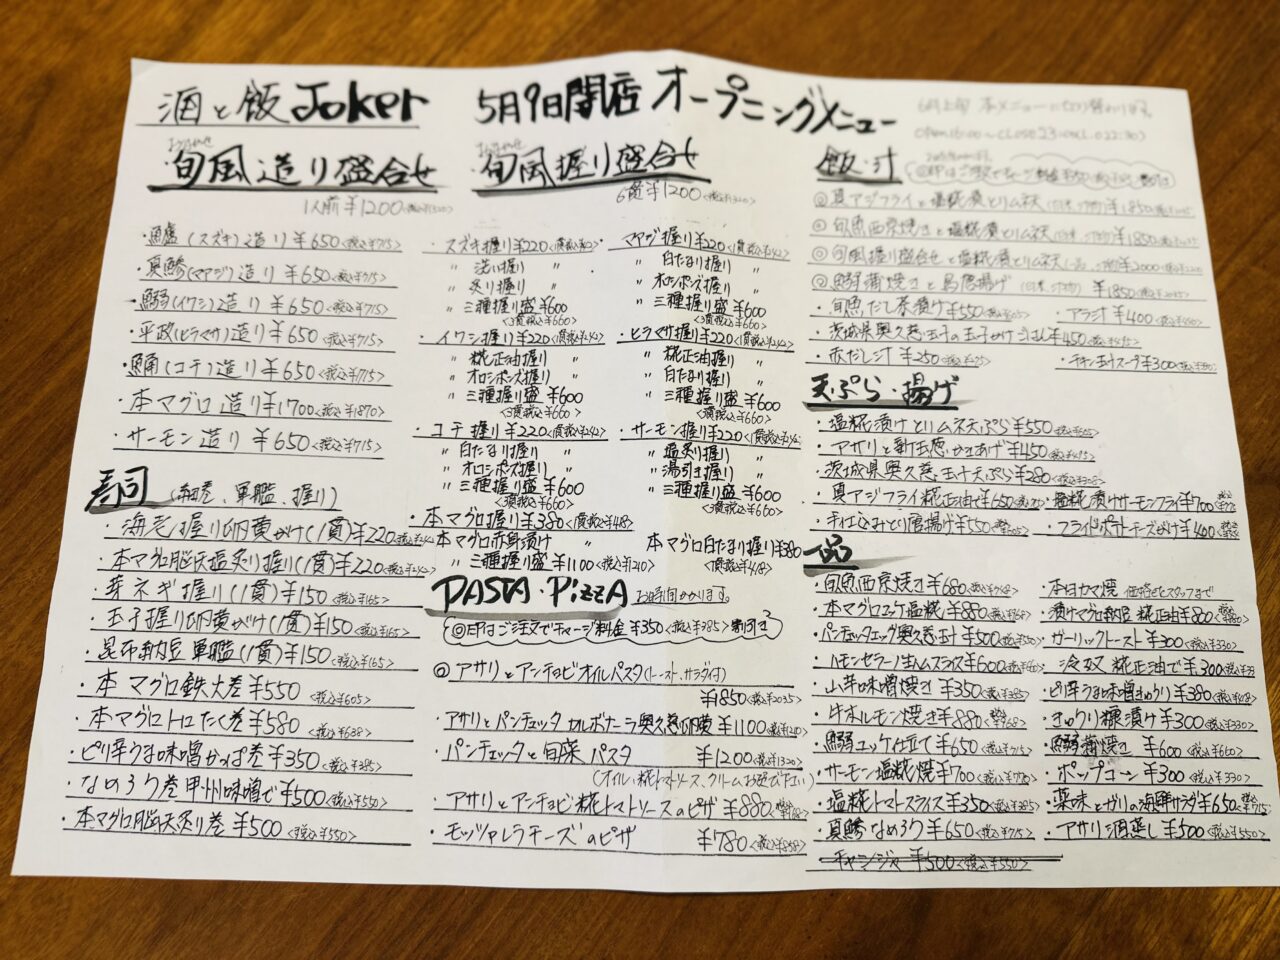 酒と飯 Joker
5月9日開店 オープニングメニュー
6月上旬 本メニューに
open16:00〜CLOSE23:00(L.O22:30)
旬風造り盛合せ
1人前 ¥1200<税込¥1320>
・鱸(スズキ)造り ¥650<税込¥715>
・真鯵(マアジ)造り ¥650<税込¥715>
・鰯(イワシ)造り ¥650<税込¥715>
・平政(ヒラマサ)造り ¥650<税込¥715>
・鯒(コチ)造り ¥650<税込¥715>
・本マグロ造り ¥1700<税込¥1870>
・サーモン造り ¥650<税込¥715>
寿司(細巻、軍艦、握り)
・海老握り卵黄がけ(1貫)¥220<税込¥242>
・本マグロ脳天塩炙り握り(1貫)¥220<税込¥242>
・芽ネギ握り(1貫)¥150<税込¥165>
・玉子握り卵黄がけ(1貫)¥150<税込¥165>
・昆布納豆軍艦(1貫)¥150<税込¥165>
・本マグロ鉄火巻 ¥550<税込¥605>
・本マグロトロたく巻 ¥580<税込¥638>
・ピリ辛うま味噌かっぱ巻 ¥350<税込¥385>
・なめろう巻甲州味噌で ¥500<税込¥550>
・本マグロ脳天炙り巻 ¥500<税込¥550>
旬風握り盛合せ
6貫¥1200<税込¥1320>
・スズキ握り¥220
〃 洗い握り 〃
〃 炙り握り 〃
〃 三種握り盛 ¥600
<3貫税込¥660>
・イワシ握り¥220<1貫税込¥242>
〃 糀正油握り 〃
〃 オロシポンズ握り 〃
〃 三種握り盛 ¥600
<3貫税込¥660>
・コチ握り¥220<1貫税込¥242>
〃 白たまり握り 〃
〃 オロシポンズ握り 〃
〃 三種握り盛 ¥600
<3貫税込¥660>
・本マグロ握り¥380<1貫税込¥418>
本マグロ赤身漬け 〃
〃 三種握り盛 ¥1100<税込¥1210>
マアジ握り¥220<1貫税込¥242>
〃 白たまり握り 〃
〃 オロシポンズ握り 〃
〃 三種握り盛 ¥600
<3貫税込¥660>
・ヒラマサ握り¥220<1貫税込¥242>
〃 糀正油握り 〃
〃 白たまり握り 〃
〃 三種握り盛 ¥600
<3貫税込¥660>
・サーモン握り¥220<1貫税込¥242>
〃 塩炙り握り 〃
〃 湯引き握り 〃
〃 三種握り盛 ¥600
<3貫税込¥660>
本マグロ白たまり握り¥380
<税込¥418>
PASTA・PizzA お時間かかります。
◎印はご注文でチャージ料金¥350<税込¥385>割引き
◎アサリとアンチョビオイルパスタ(トースト、サラダ付)
¥1850<税込¥2035>
・アサリとパンチェッタカルボナーラ奥久慈卵黄 ¥1100<税込¥1210>
・パンチェッタと旬菜パスタ ¥1200<税込¥1320>
(オイル、糀トマトソース、クリームお選び下さい)
・アサリとアンチョビ糀トマトソースのピザ ¥880
・モッツァレラチーズのピザ ¥780<税込¥858>
飯・汁
◎真アジフライと塩糀漬とりムネ天 ¥1850
◎旬魚西京焼きと塩糀漬とりムネ天 ¥1850
◎旬風握り盛合せと塩糀漬とりムネ天 ¥2000
◎鰯蒲焼きと鳥唐揚げ ¥1850
・旬魚だし茶漬け ¥550 ・アラ汁 ¥400
・茨城県奥久慈玉子の玉子かけごはん ¥450
・赤だし汁 ¥250 ・チキン玉汁スープ¥300
天ぷら・揚げ
・塩糀漬けとりムネ天ぷら ¥550
・アサリと新玉葱かきあげ ¥450
・茨城県奥久慈玉子天ぷら ¥280<税込¥308>
・真アジフライ糀正油で ¥650 ・塩糀漬けサーモンフライ¥700
・手仕込みとり唐揚げ ¥550 ・フライドポテトチーズがけ¥400
一品
・旬魚西京焼き ¥680<税込¥748>
・本マグロユケ塩糀 ¥880
・パンチェッタエッグ奥久慈玉子 ¥500
・ハモンセラーノ生ハムスライス¥600
・山芋味噌焼き ¥350<税込¥385>
・牛ホルモン焼き ¥880
・鰯ユッケ仕立て ¥650<税込¥715>
・サーモン塩糀焼 ¥700<税込¥770>
・塩糀トマトスライス ¥350<税込¥385>
・真鯵なめろう ¥650<税込¥715>
チャンジャ ¥500<税込¥550>
・本日カマ焼 価格はスタッフまで
・漬けマグロ納豆 糀正油¥800
・ガーリックトースト ¥300<税込¥330>
・冷奴 糀正油で ¥300
・ピリ辛うま味噌きゅうり ¥380<税込¥418>
・きゅうり糠漬け ¥300<税込¥330>
・鰯蒲焼き ¥600<税込¥660>
・ポップコーン ¥300<税込¥330>
・薬味とガリの海鮮サラダ¥650
・アサリ酒蒸し ¥500<税込¥550>